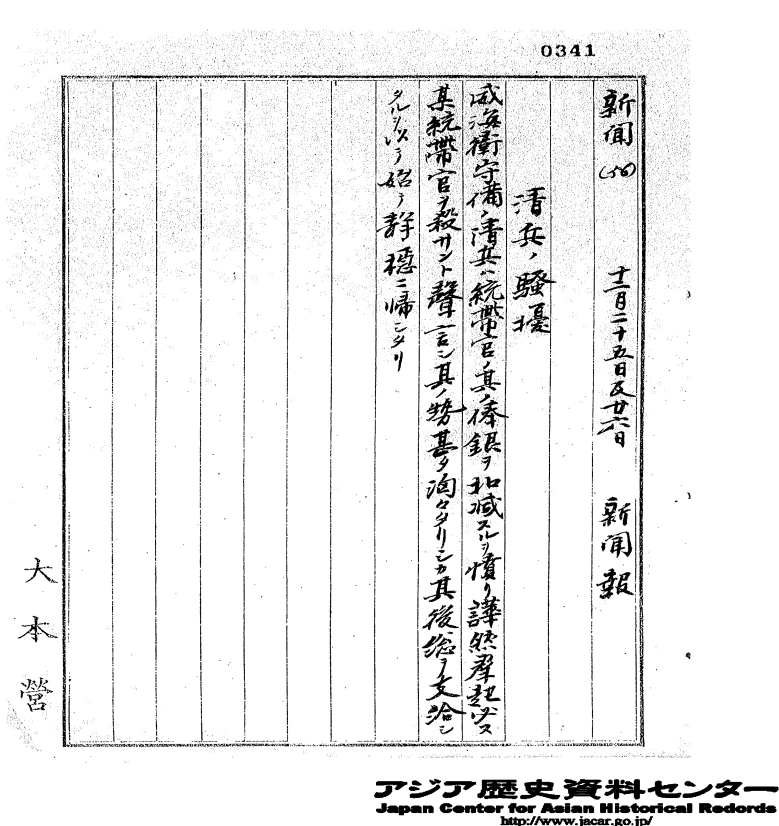 0341
新聞(56) 十二月二十五日及廿六日 新聞報
清兵ノ騒擾
威海衛守備ノ清兵ハ統帯官ノ其ノ俸銀ヲ扣減スルヲ憤リ譁然群起必ス
其統帯官ヲ殺サント聲言シ其ノ勢甚タ洶々タリシカ其後総ヲ支給シ
タルヲ以テ始テ静穏ニ帰シタリ
大本営
アジア歴史資料センター
Japan Center for Asian Historical Redords
http://www.jacar.go.jp/